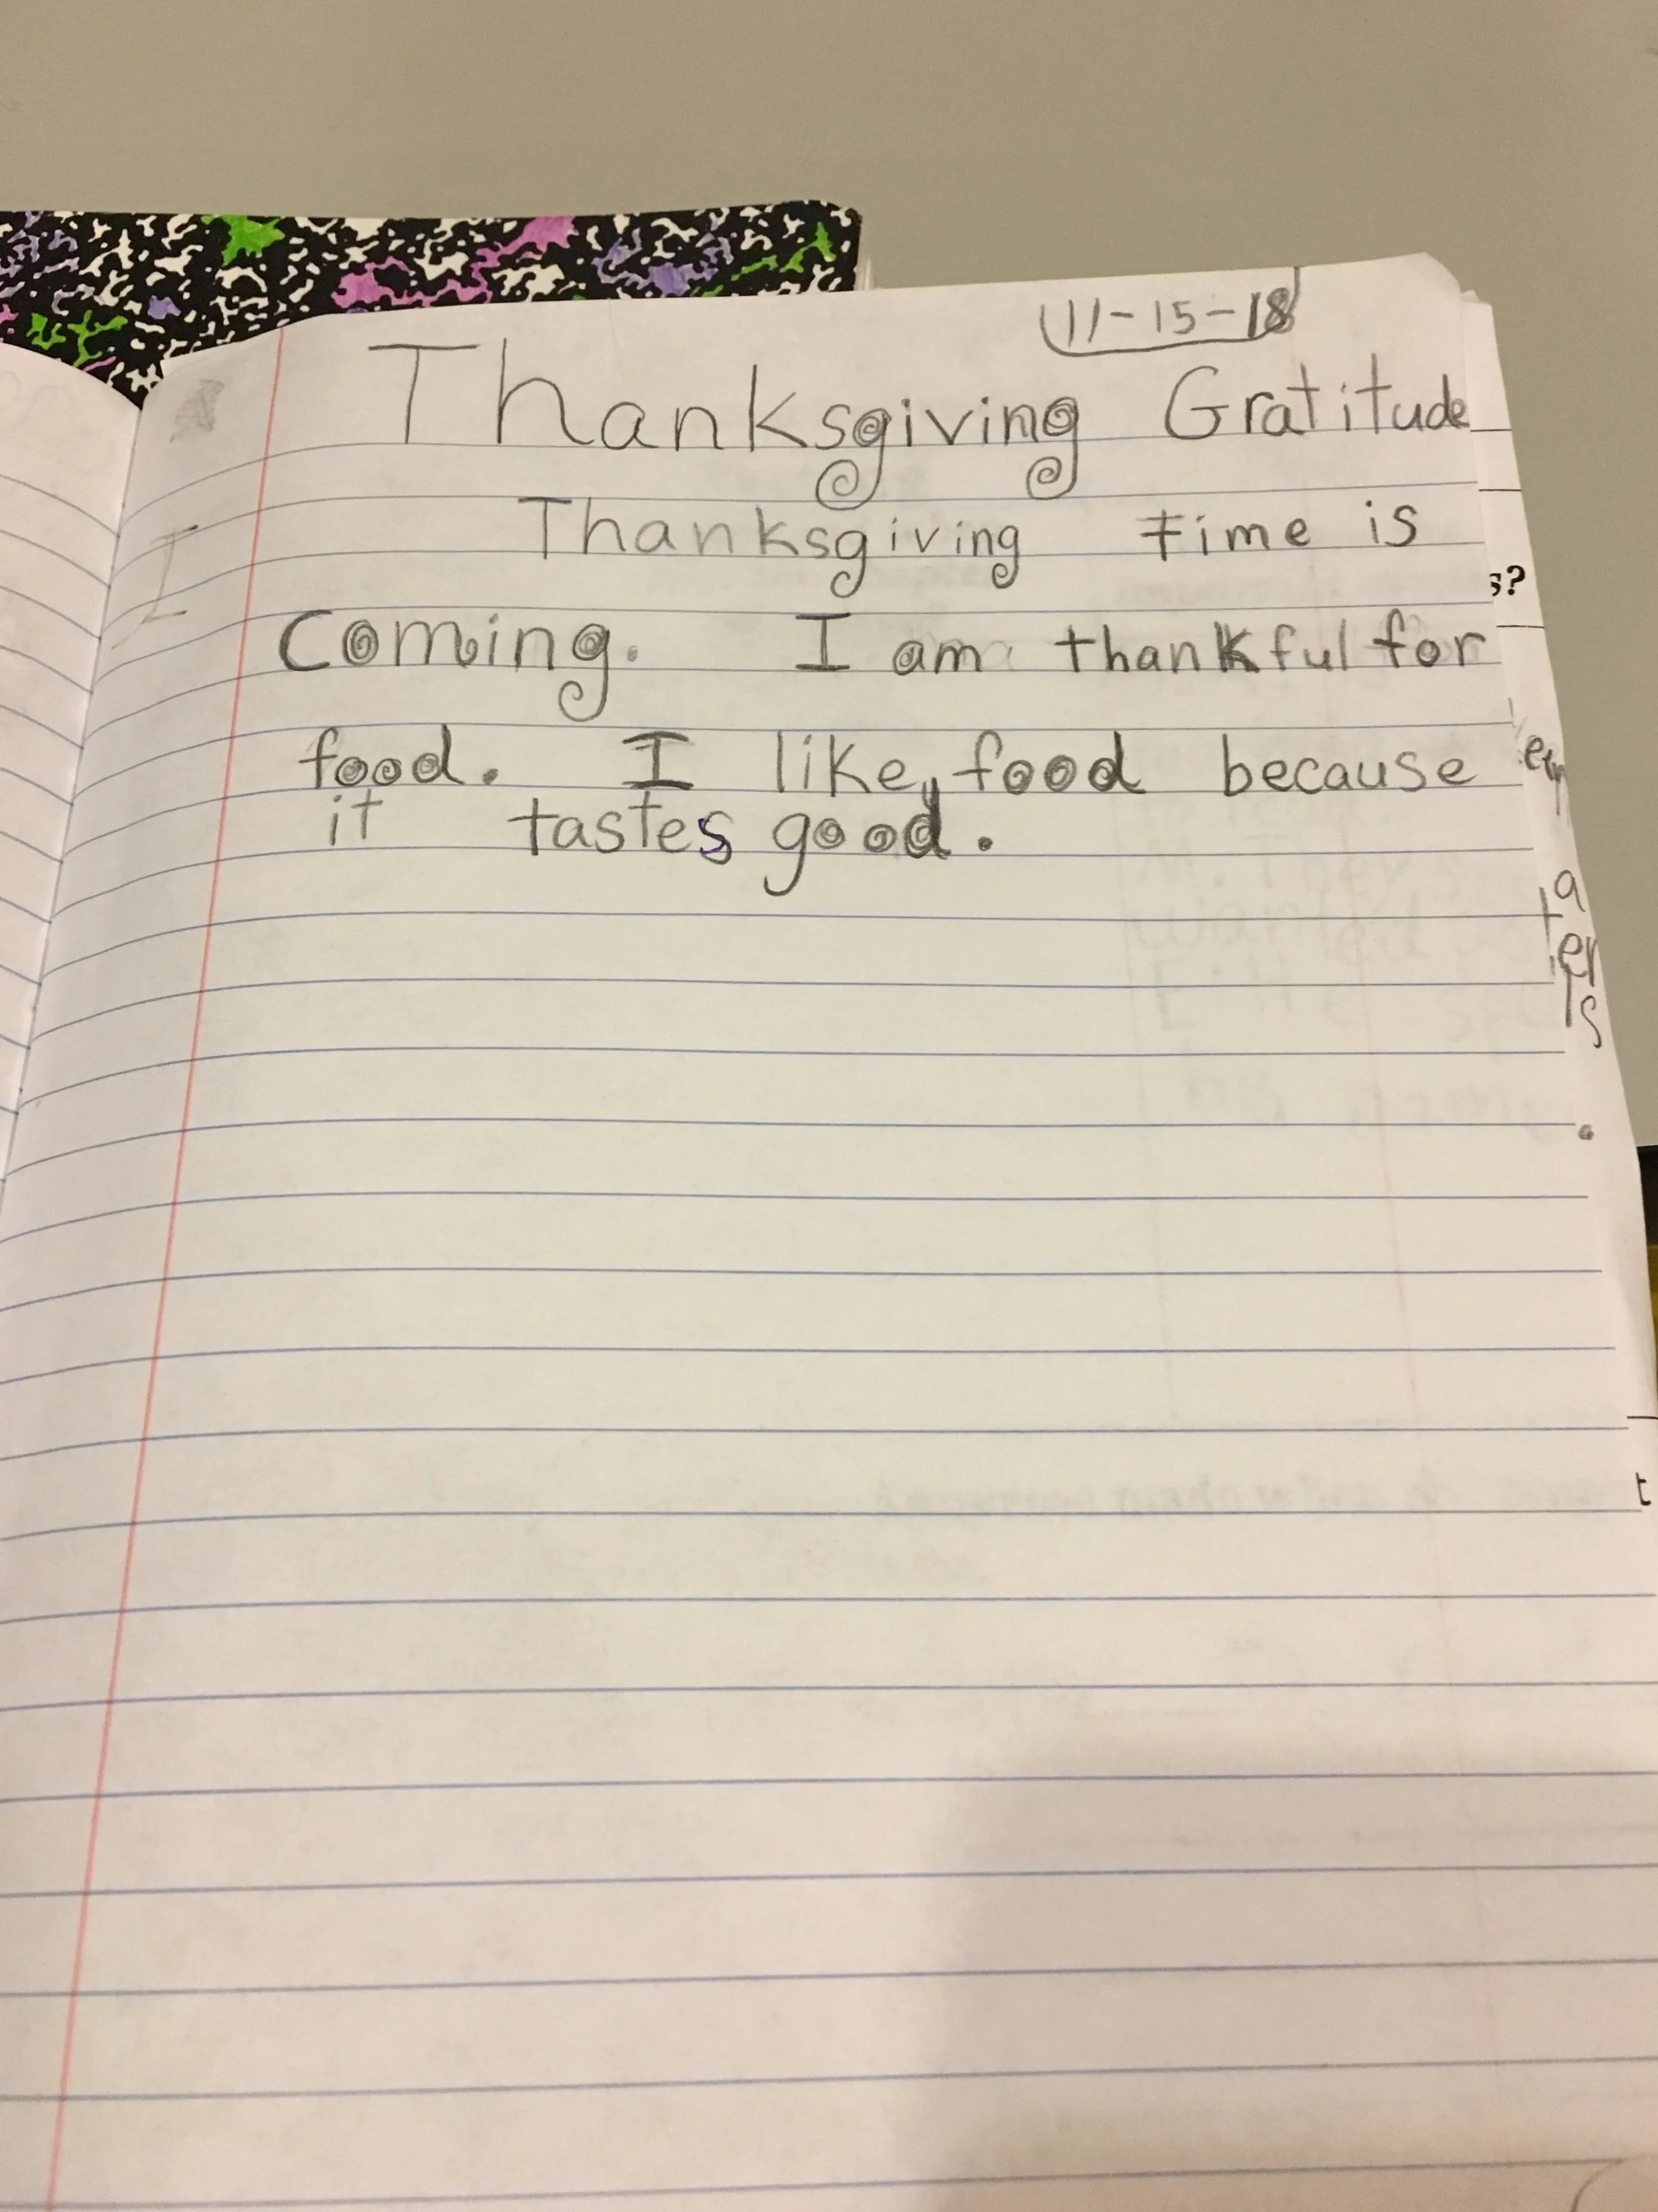 11-15-18
Thanksgiving Gratitude
Thanksgiving time is
s?
Coming. I am thankful for
food. I like, food because
it tastes good.
a
ter
s
t